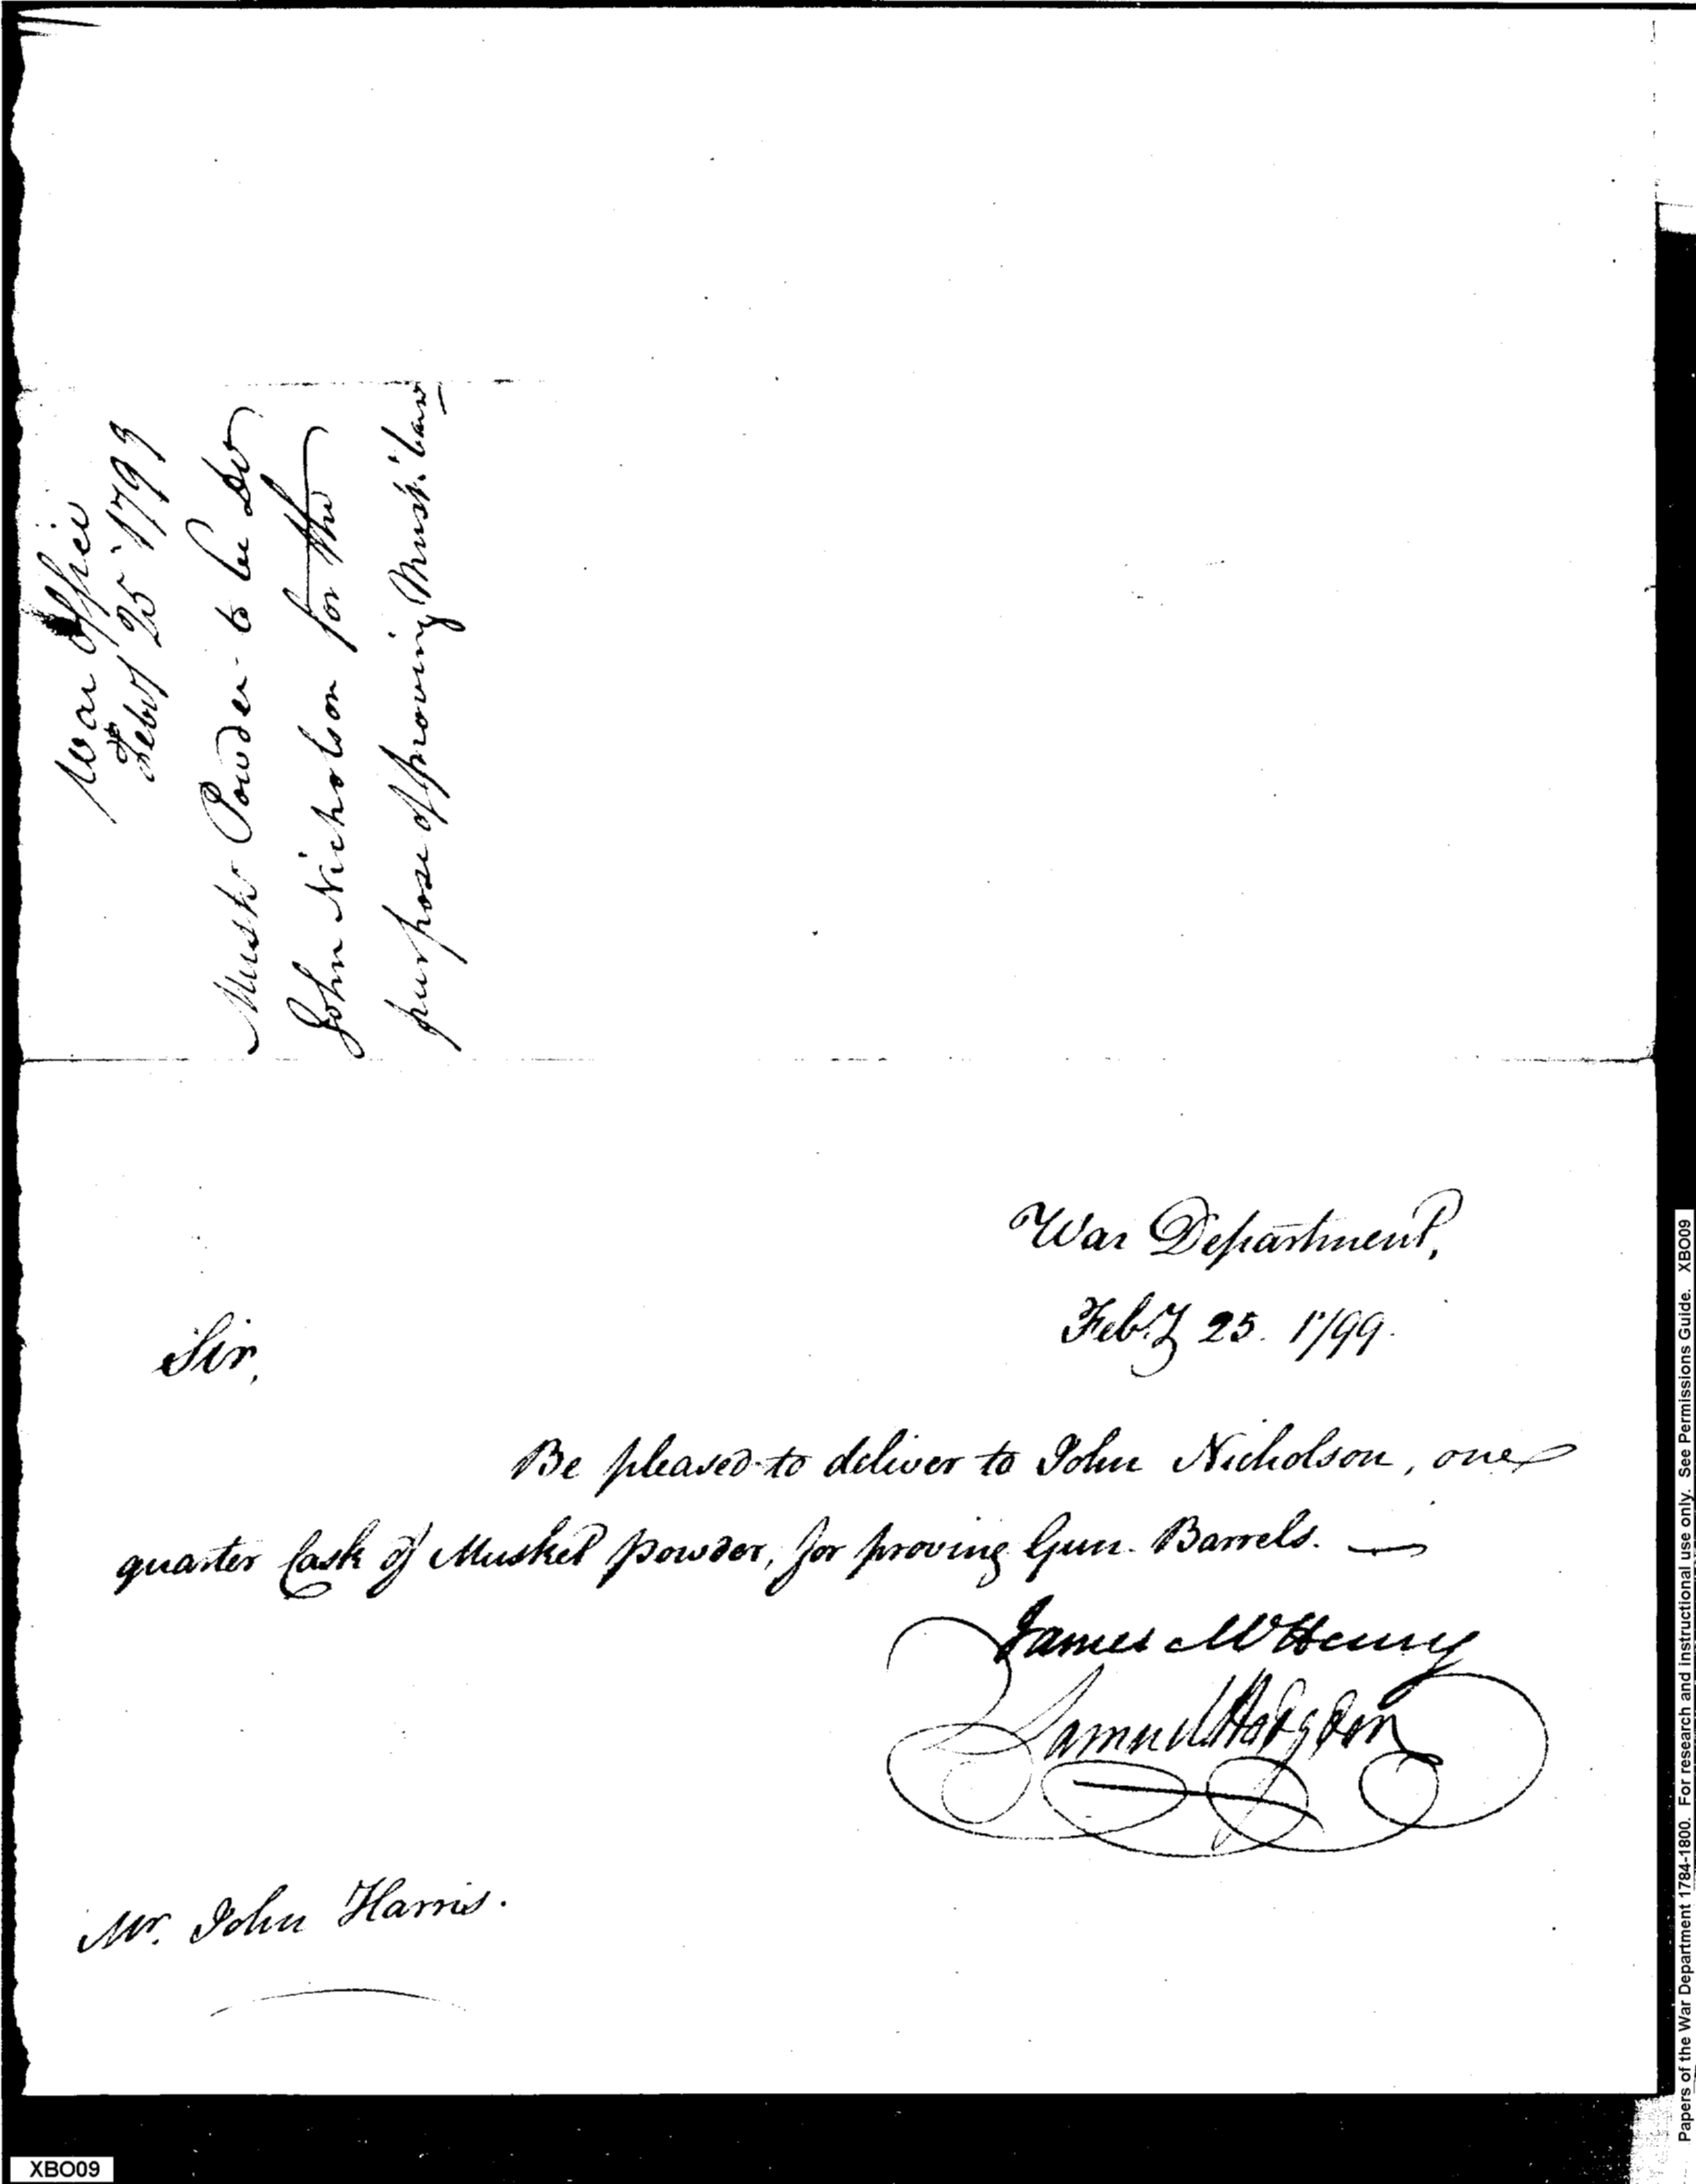 War Office
Feby 25 1799
Musk Powder to be
John Nicholson for the
purpose of proving Musk.
War Department,
Feby 25. 1799.
Sir,
Be pleased to deliver to John Nicholson, one
quarter Cask of Musket powder, for proving Gun Barrels. —
James McHenry
Samuel Hodgdon
Mr. John Harris.
Papers of the War Department 1784-1800. For research and instructional use only. See Permissions Guide. XBO09
XBO09